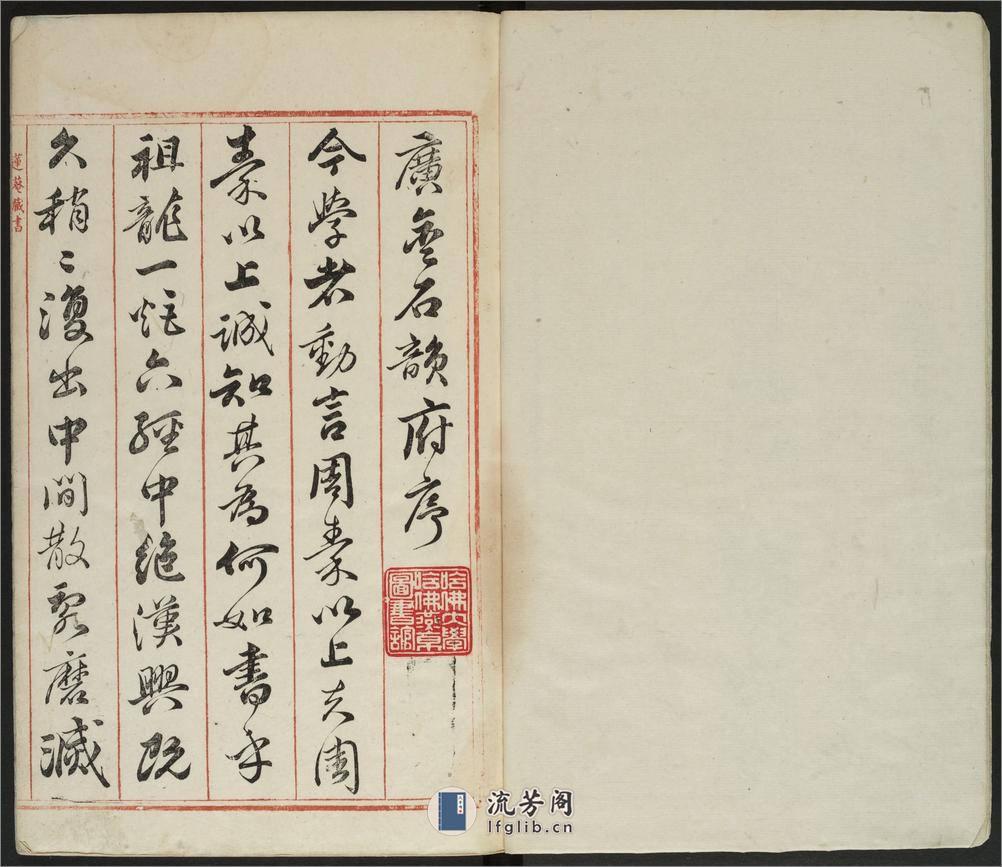 廣金石韻府序
今學者動言周秦以上夫周
秦以上誠知其為何如書乎
祖龍一炬六經中絶漢興既
久稍〻復出中間散亂磨滅
蓮菴藏書
哈佛大學
哈佛燕京
圖書館
流芳阁
lfglib.cn